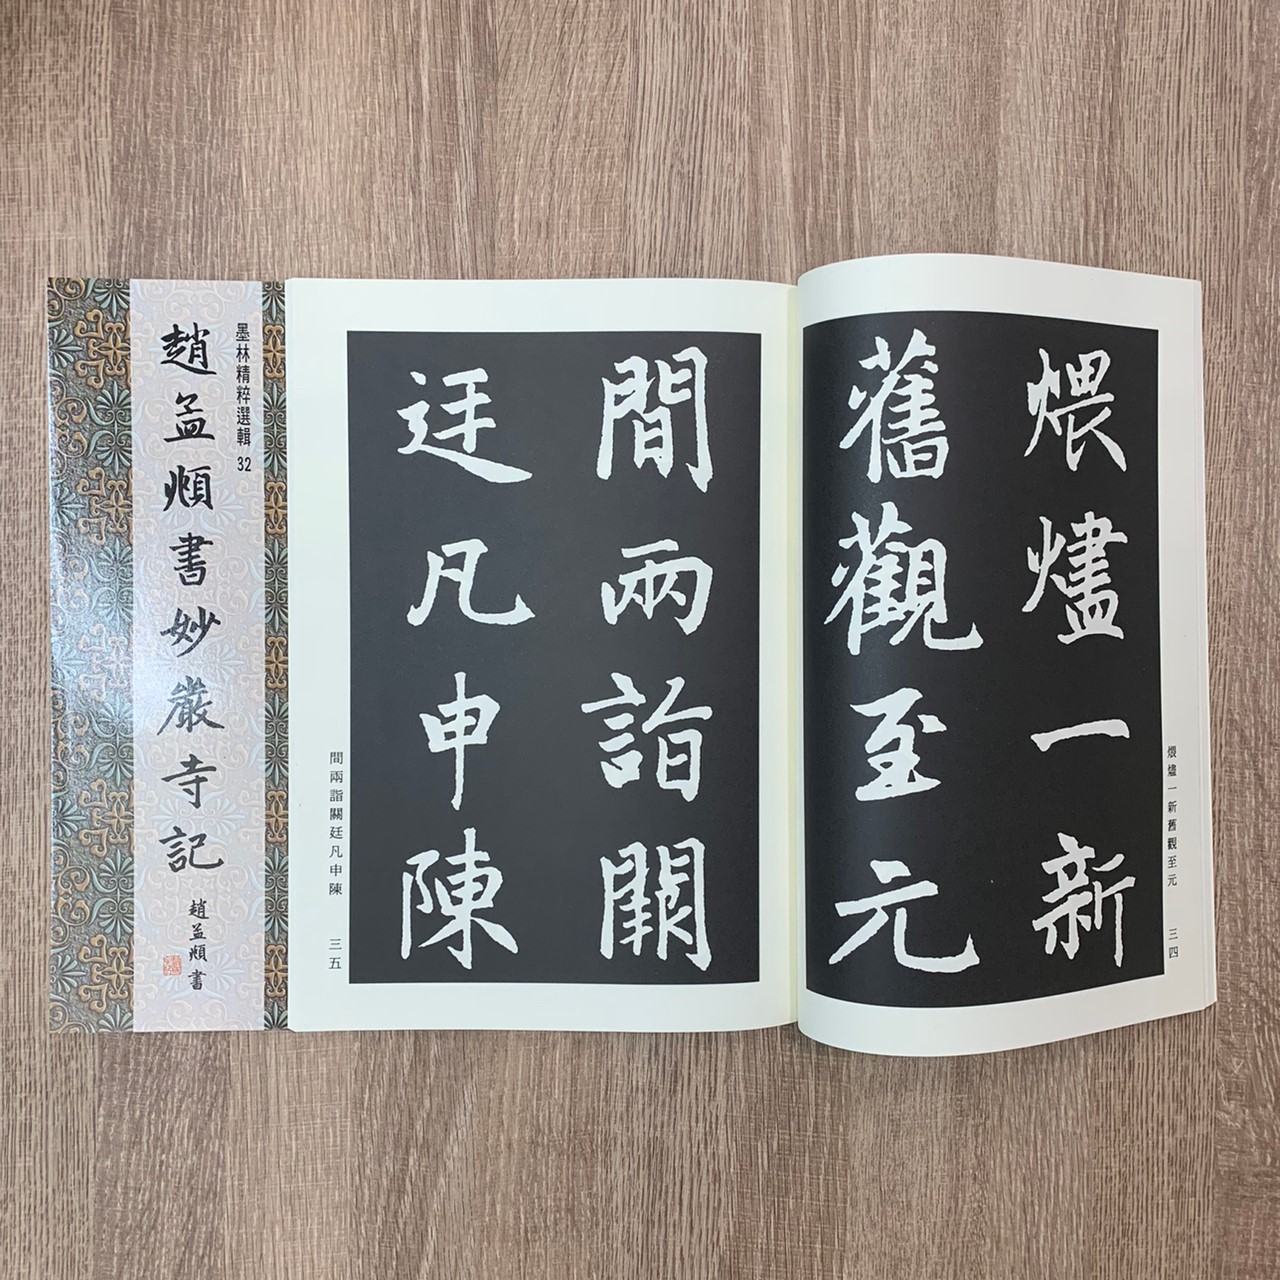 墨林精粹選輯 32
趙孟頫書妙嚴寺記
趙孟頫書
煨燼一新
舊觀至元
煨燼一新舊觀至元 三四
間兩詣闕
廷凡申陳
間兩詣闕廷凡申陳 三五